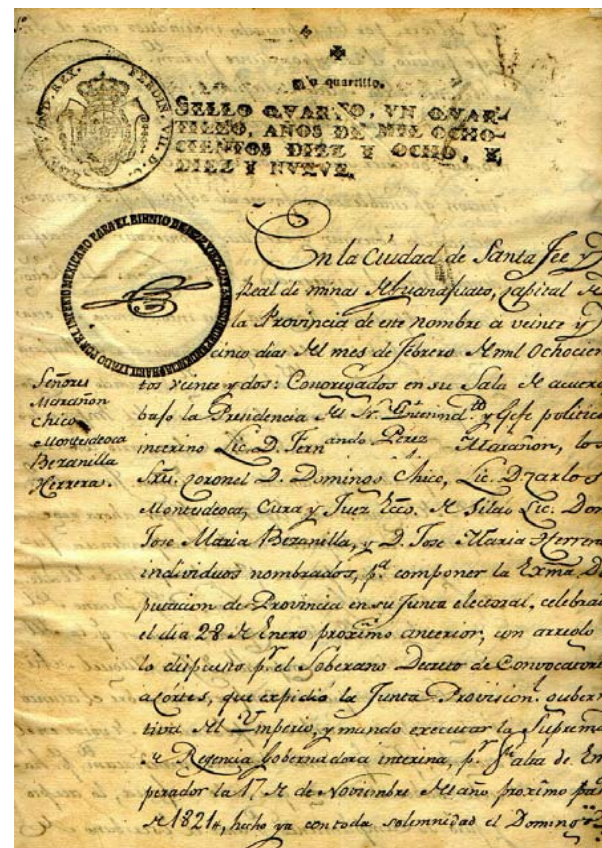 FERDIN. VII. D. G.
HISP. ET IND. REX.
Vn quartillo.
SELLO QVARTO, VN QVAR-
TILLO, AÑOS DE MIL OCHO-
CIENTOS DIEZ Y OCHO, Y
DIEZ Y NUEVE.
HABILITADO POR EL IMPERIO MEXICANO PARA EL BIENIO DE
En la Ciudad de Santa Fee y
Real de minas de Guanajuato, capital de
la Provincia de este nombre a veinte y
cinco dias del mes de febrero de mil Ochocien
tos veinte y dos: Congregados en su Sala de acuerdo
bajo la Presidencia del Sr. Yntend.te y Gefe politico
interino Lic. D. Fernando Perez Marañon, los
Sres. Coronel D. Domingo Chico, Lic. D. Carlos
Montesdeoca, Cura y Juez Ecco. de Silao Lic. Don
Jose Maria Bezanilla, y D. Jose Maria Herrera
individuos nombrados, pa. componer la Exma. Di
putacion de Provincia en su Junta electoral, celebrada
el dia 28 de Enero proximo anterior, con arreglo
lo dispuesto pr. el Soberano Decreto de Convocatoria
a Cortes, que expidió la Junta Provision.l Guber
tiva del Ymperio, y mando executar la Suprema
Regencia Gobernadora interina, pr. falta de Em
perador la 17 de Noviembre del año proximo pa
de 1821, hecho ya con toda solemnidad el Domingo
Señores
Marañon
Chico
Montesdeoca
Bezanilla
Herrera.